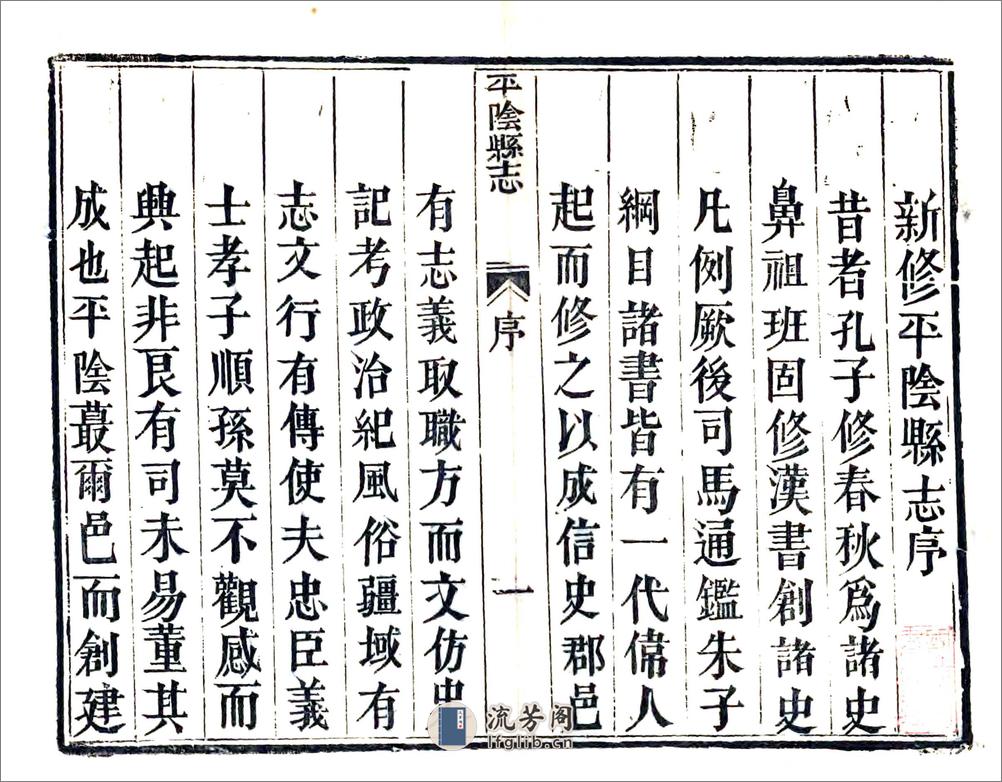 新修平陰縣志序
昔者孔子修春秋爲諸史
鼻祖班固修漢書創諸史
凡例厥後司馬通鑑朱子
綱目諸書皆有一代偉人
起而修之以成信史郡邑
平陰縣志
序
一
有志義取職方而文仿史
記考政治紀風俗疆域有
志文行有傳使夫忠臣義
士孝子順孫莫不觀感而
興起非艮有司未易董其
成也平陰蕞爾邑而創建
流芳阁
lfglib.cn